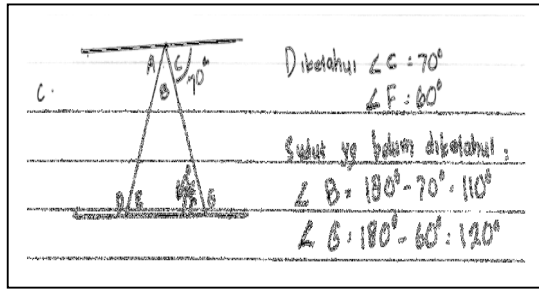 A C 70°
B
C.
D E G
Diketahui ∠C = 70°
∠F = 60°
Sudut yg belum diketahui :
∠ B = 180° - 70° = 110°
∠ G = 180° - 60° = 120°